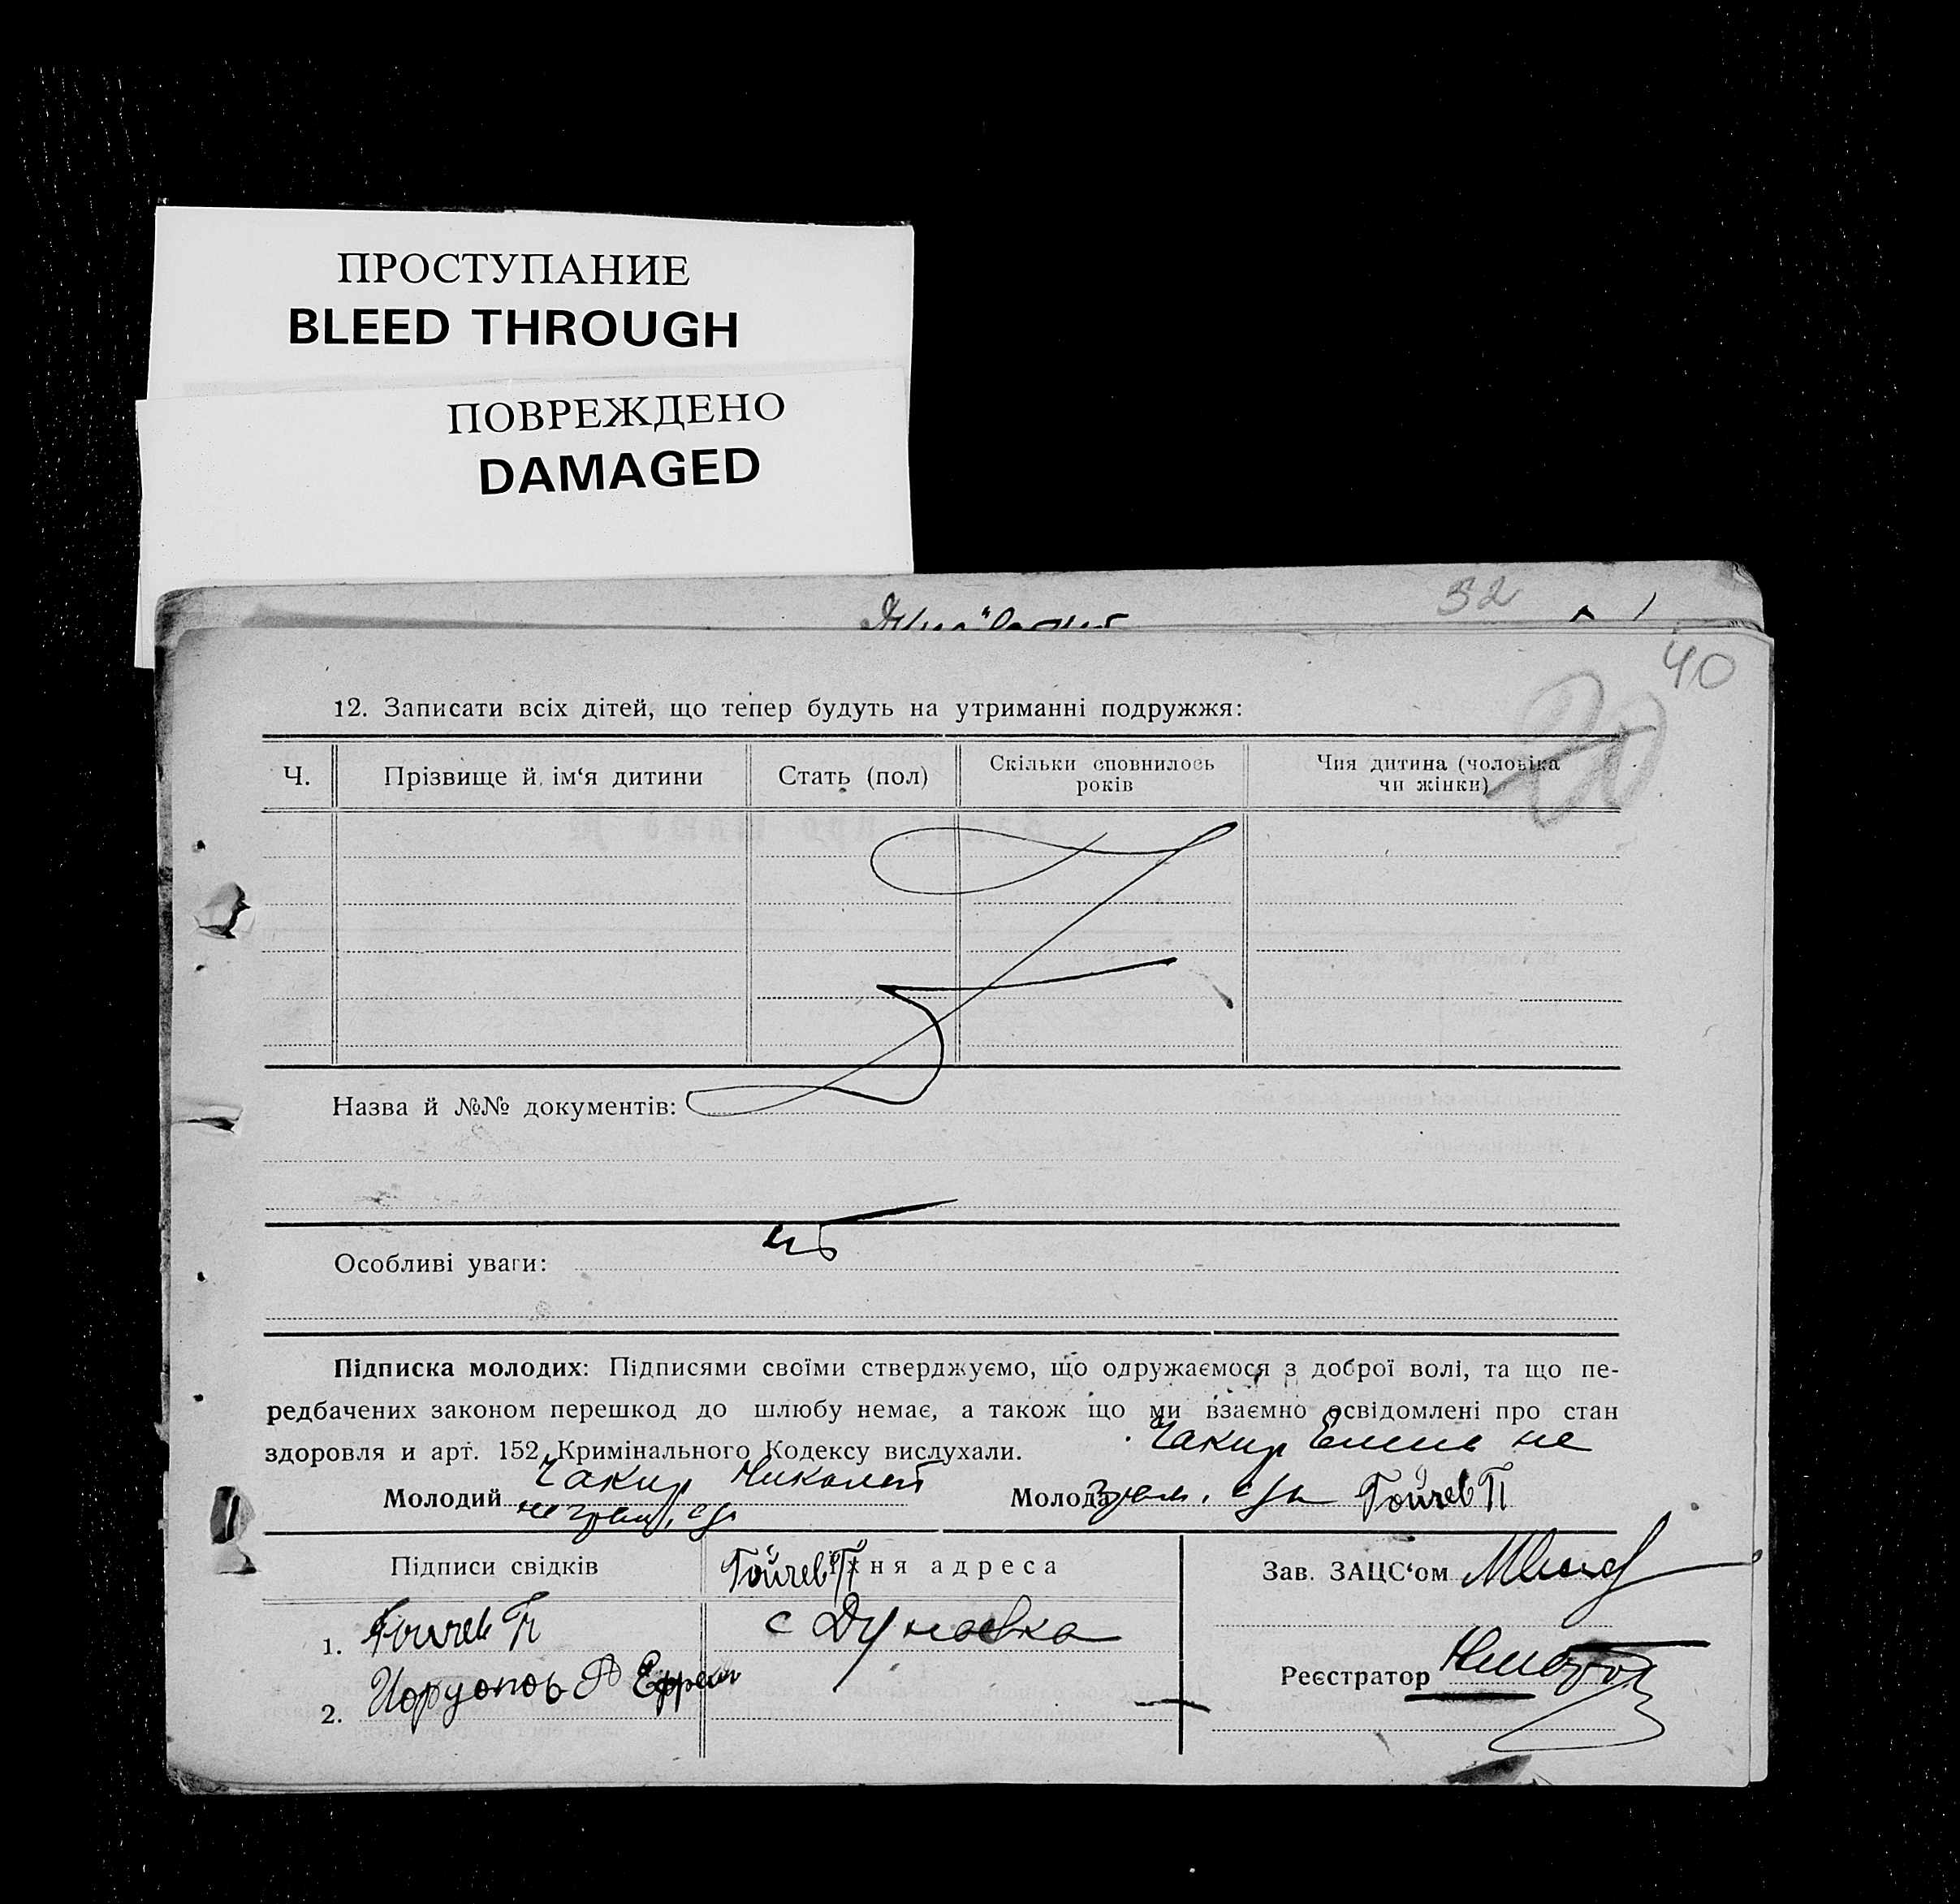 ПРОСТУПАНИЕ
BLEED THROUGH
ПОВРЕЖДЕНО
DAMAGED
32
40
20
12. Записати всіх дітей, що тепер будуть на утриманні подружжя:
Ч. Прізвище й ім‘я дитини Стать (пол) Скільки сповнилось років Чия дитина (чоловіка чи жінки)
Назва й №№ документів:
Особливі уваги:
Підписка молодих: Підписями своїми стверджуємо, що одружаємося з доброї волі, та що пе-
редбачених законом перешкод до шлюбу немає, а також що ми взаємно освідомлені про стан
здоровля и арт. 152 Кримінального Кодексу вислухали.
Чакир Елена не
Молодий Чакир Николай
неграм,
Молода грам, Гойчев П
Підписи свідків
адреса
Гойчев П
Зав. ЗАЦС‘ом
1. Гойчев П
с Дунаевка
2.
Реєстратор